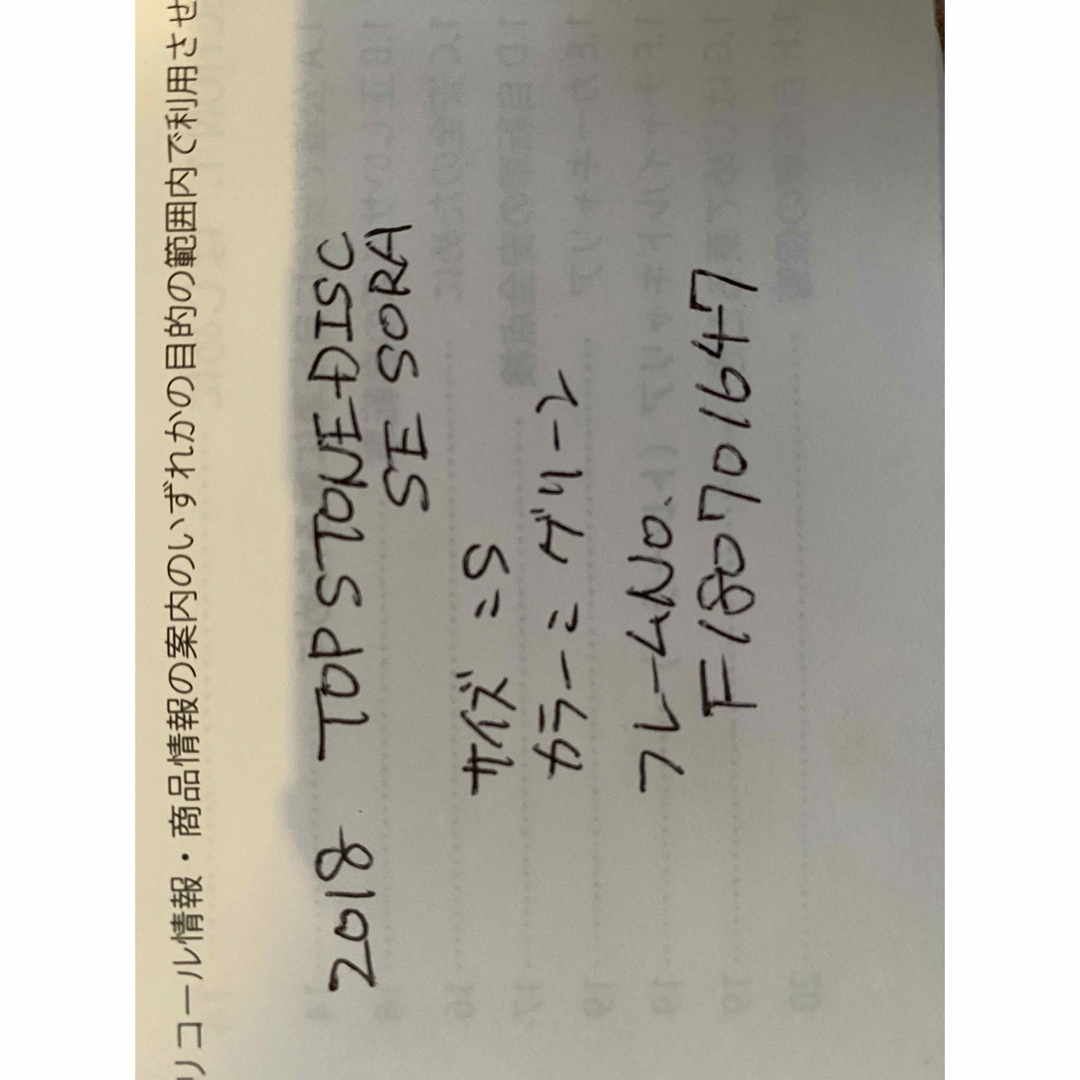 リコール情報・商品情報の案内のいずれかの目的の範囲内で利用させ
2018 TOPSTONE DISC
SE SORA
サイズ = S
カラー = グリーン
フレームNo.
F180701647